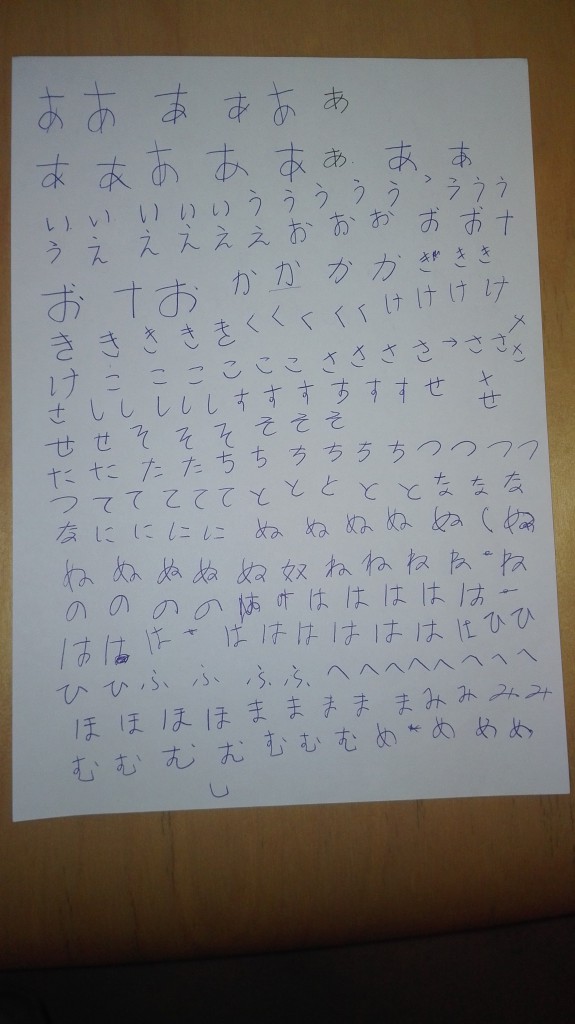 あ あ あ あ あ あ
あ あ あ あ あ あ あ あ
い い い い い う う う う う う う う
う え え え え え お お お お お
お お か か か か き き き
き き き き を く く く く く け け け け
け こ こ こ こ こ こ さ さ さ さ さ さ さ
さ し し し し し す す す す す す せ せ
せ せ そ そ そ そ そ そ
た た た た ち ち ち ち ち ち つ つ つ つ
つ て て て て て と と と と と な な な
な に に に に ぬ ぬ ぬ ぬ ぬ ぬ
ぬ ぬ ぬ ぬ ぬ 奴 ね ね ね ね ね
の の の の は は は は は は
は は は は は は は は は は ひ ひ
ひ ひ ふ ふ ふ ふ へ へ へ へ へ へ へ へ へ
ほ ほ ほ ほ ま ま ま ま ま み み み み
む む む む む む む め め め め
し